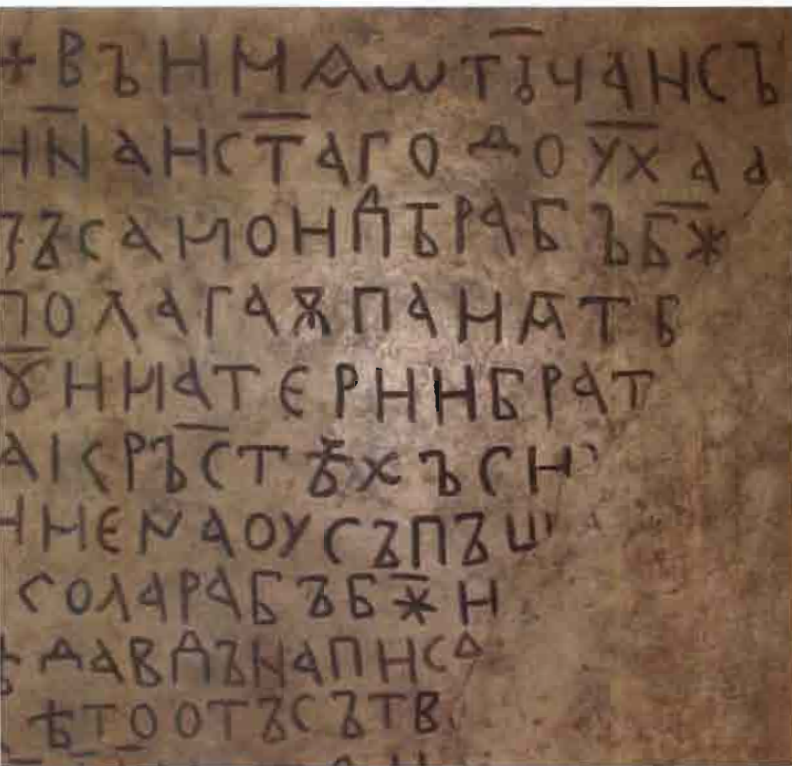 + ВЪ ИМѦ ѠТЬЧА И СЪ
ИНА И СТ҃АГО ДОУХ҃А А
ЗЪ САМОИЛЬ РАБЪ БЖ҃
ПОЛАГАѪ ПАМѦТЬ
ꙊИ МАТЕРИ И БРАТ
АІ КРЬСТѢХЪ СИ
ИМЕНА ОУСЪПЪШ
СОЛА РАБЪ БЖ҃И
Ѣ ДАВДЪ НАПИСА
ѢТО ОТЪ СЪТВ